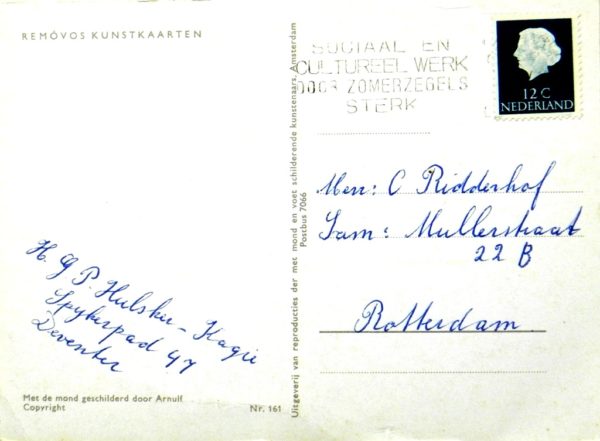 REMÓVOS KUNSTKAARTEN
SOCIAAL EN
CULTUREEL WERK
DOOR ZOMERZEGELS
STERK
12 C
NEDERLAND
Uitgeverij van reproducties der met mond en voet schilderende kunstenaars, Amsterdam
Postbus 7066
Mevr: C Ridderhof
Sam: Mullerstraat
22 B
Rotterdam
H. G P. Hulsker - Kagie
Spykerpad 47
Deventer
Met de mond geschilderd door Arnulf
Copyright
Nr. 161